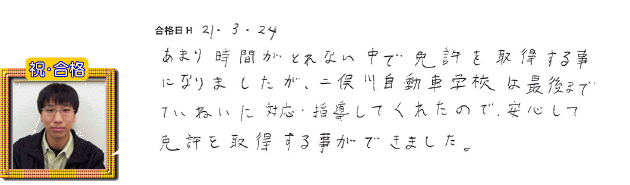 合格日 H 21・3・24
祝・合格
あまり時間がとれない中で免許を取得する事
になりましたが、二俣川自動車学校は最後まで
ていねいに対応・指導してくれたので、安心して
免許を取得する事ができました。